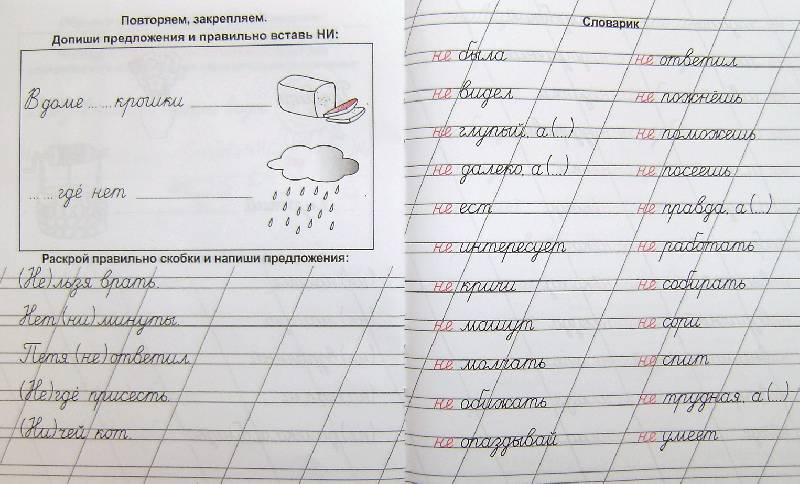 Повторяем, закрепляем.
Допиши предложения и правильно вставь НИ:
В доме ... ... крошки ____________
... ... где́ нет ________________
Раскрой правильно скобки и напиши предложения:
(Не)льзя врать.
Нет (ни) минуты.
Петя (не) ответил.
(Не)где́ присесть.
(Ни)чей кот.
Словарик
не была
не видел
не глупый, а (...)
не далеко, а (...)
не ест
не интересует
не кричи
не машут
не молчать
не обижать
не опаздывай
не ответил
не пожнёшь
не поможешь
не посеешь
не правда, а (...)
не работать
не собирать
не сори
не спит
не трудная, а (...)
не умеет